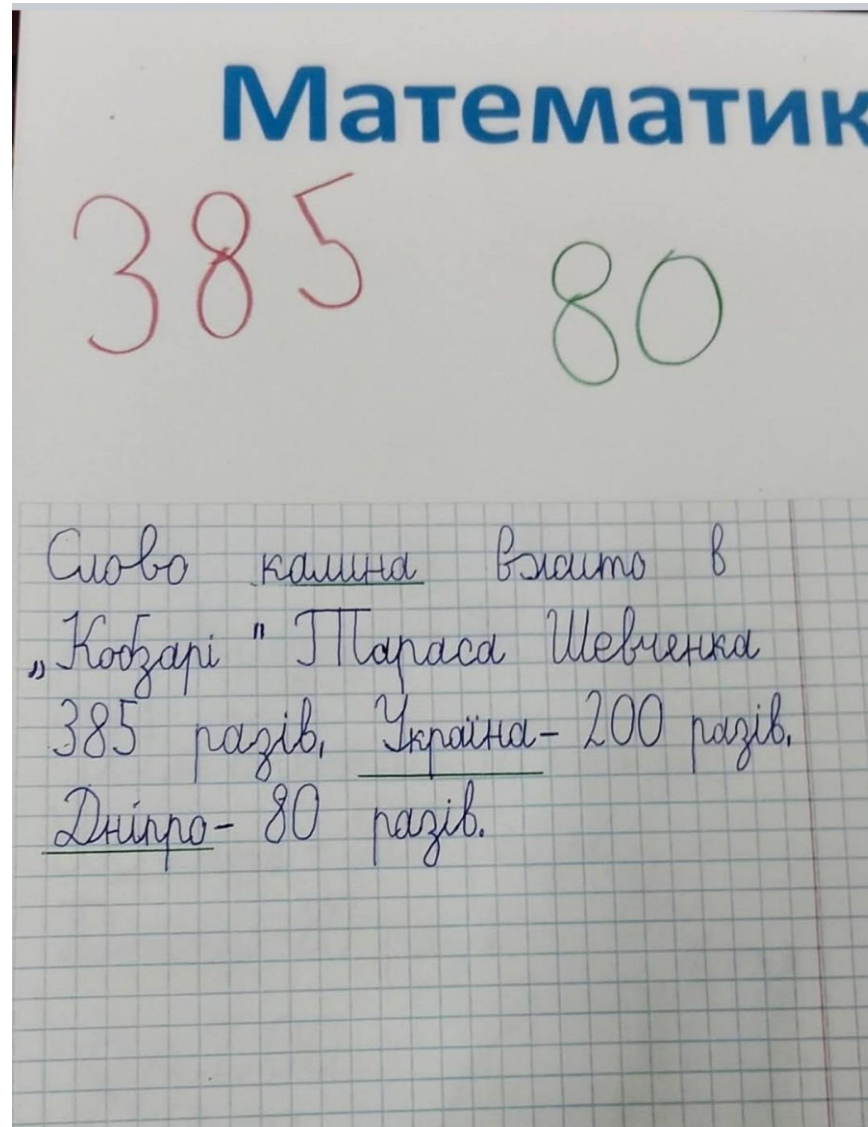 Математик
385
80
Слово калина вжито в
„Кобзарі" Тараса Шевченка
385 разів, Україна- 200 разів,
Дніпро- 80 разів.